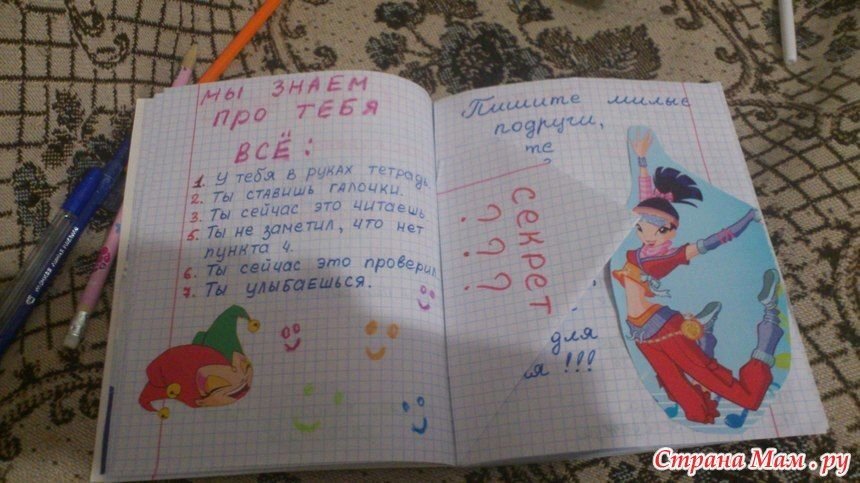 МЫ ЗНАЕМ
ПРО ТЕБЯ
ВСЁ:
1. У ТЕБЯ В РУКАХ ТЕТРАДЬ.
2. ТЫ СТАВИШЬ ГАЛОЧКИ.
3. ТЫ СЕЙЧАС ЭТО ЧИТАЕШЬ
5. ТЫ НЕ ЗАМЕТИЛ, ЧТО НЕТ
ПУНКТА 4.
6. ТЫ СЕЙЧАС ЭТО ПРОВЕРИЛ
7. ТЫ УЛЫБАЕШЬСЯ.
Пишите милые
подруги,
те
секрет
? ? ?
для
я !!!
Страна Мам.ру